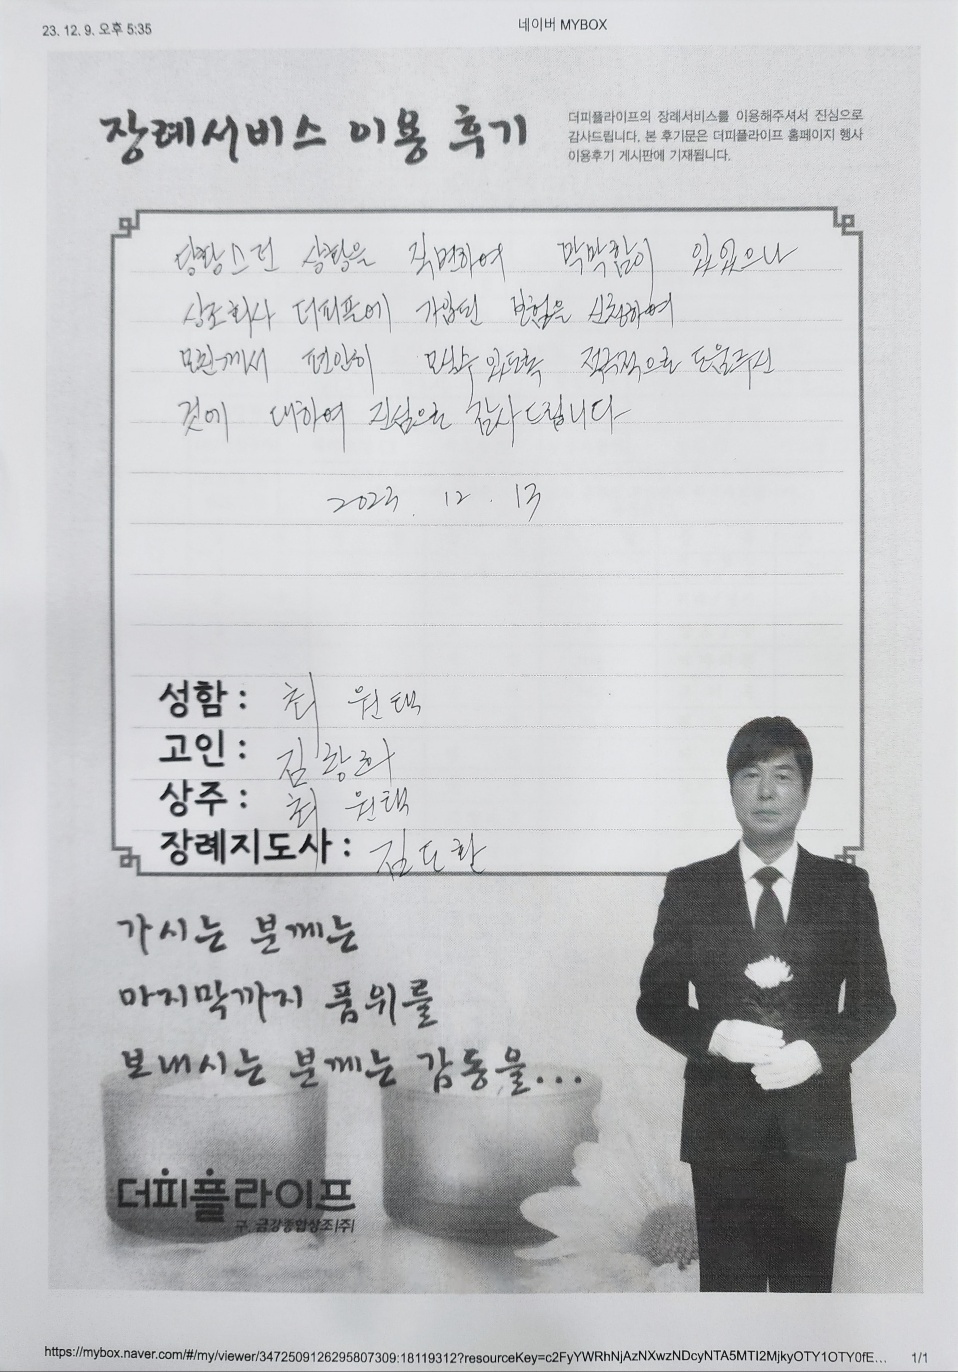 23. 12. 9. 오후 5:35
네이버 MYBOX
장례서비스 이용 후기
더피플라이프의 장례서비스를 이용해주셔서 진심으로
감사드립니다. 본 후기문은 더피플라이프 홈페이지 행사
이용후기 게시판에 기재됩니다.
당황스런 상황을 직면하여 막막함이 있었으나
상조회사 더피플에 가입된 보험을 신청하여
모친께서 편안히 모실수 있도록 적극적으로 도움주신
것에 대하여 진심으로 감사드립니다
2023. 12. 13
성함 : 최 원택
고인 : 김
상주 : 최 원택
장례지도사 : 김도환
가시는 분께는
마지막까지 품위를
보내시는 분께는 감동을...
더피플라이프
구. 금강종합상조(주)
https://mybox.naver.com/#/my/viewer/3472509126295807309:18119312?resourceKey=c2FyYWRhNjAzNXwzNDcyNTA5MTI2MjkyOTY1OTY0fE...
1/1